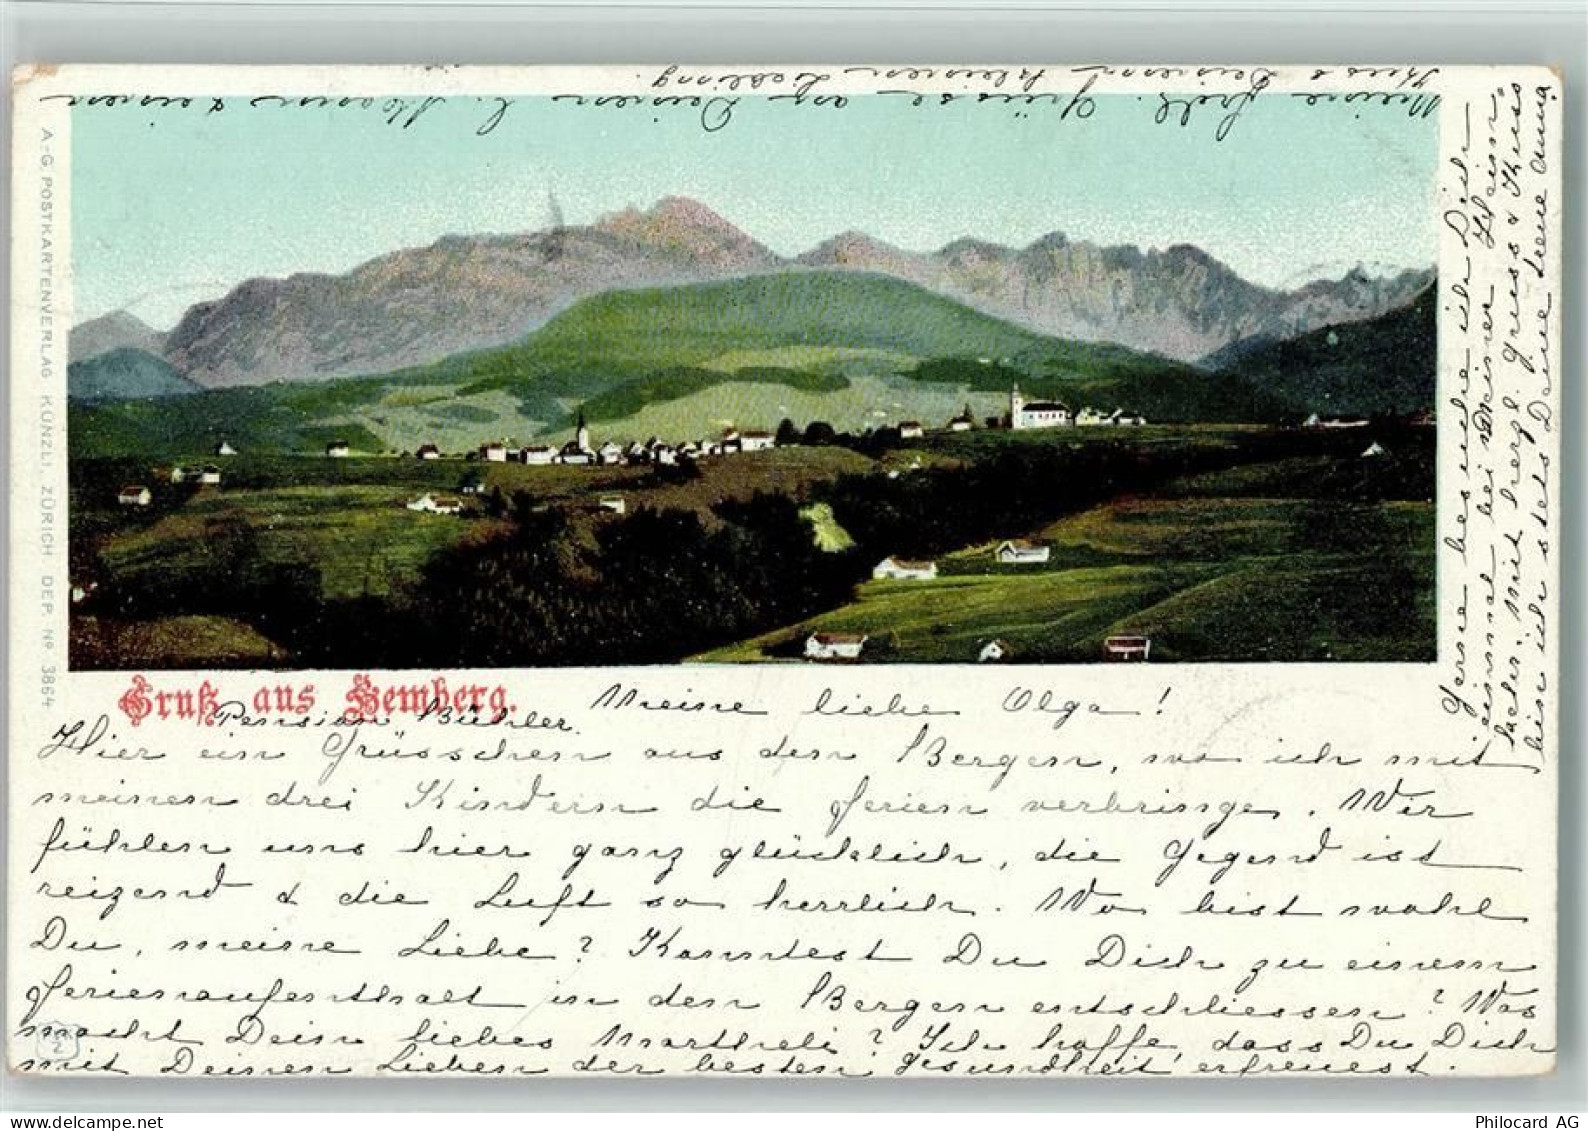 A.-G. POSTKARTENVERLAG KÜNZLI, ZÜRICH. DEP. No 3864
Gruß aus Hemberg.
Pension Bühler.
Meine liebe Olga!
Hier ein Grüsschen aus den Bergen, wo ich mit
meinen drei Kindern die Ferien verbringe. Wir
fühlen uns hier ganz glücklich, die Gegend ist
reizend & die Luft so herrlich. Wo bist wohl
Du, meine Liebe? Konntest Du Dich zu einem
Ferienaufenthalt in den Bergen entschliessen? Was
macht Dein liebes Martheli? Ich hoffe, dass Du Dich
mit Deinen Lieben der besten Gesundheit erfreuest.
Gerne besuche ich Dich
einmal bei Deiner Heim-
kehr. Mit herzl. Gruss & Kuss
bin ich stets Deine
Meine frdl. Grüsse an Deinen l. Mann & einen
Kuss Deinem kleinen Liebling.
Philocard AG
www.delcampe.net